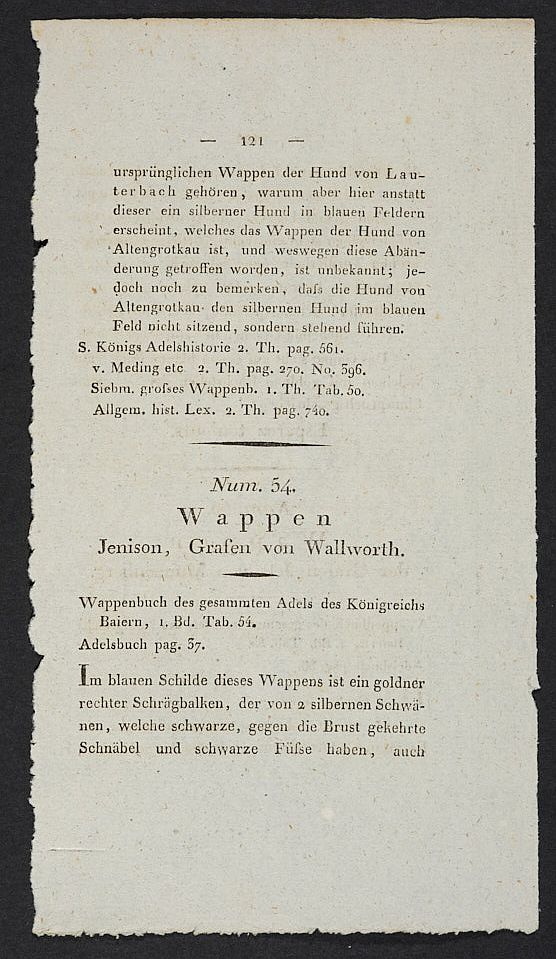 — 121 —
ursprünglichen Wappen der Hund von Lau-
terbach gehören, warum aber hier anstatt
dieser ein silberner Hund in blauen Feldern
erscheint, welches das Wappen der Hund von
Altengrotkau ist, und weswegen diese Abän-
derung getroffen worden, ist unbekannt; je-
doch noch zu bemerken, daſs die Hund von
Altengrotkau den silbernen Hund im blauen
Feld nicht sitzend, sondern stehend führen.
S. Königs Adelshistorie 2. Th. pag. 561.
v. Meding etc 2. Th. pag. 270. No. 396.
Siebm. groſses Wappenb. 1. Th. Tab. 50.
Allgem. hist. Lex. 2. Th. pag. 740.
Num. 54.
Wappen
Jenison, Grafen von Wallworth.
Wappenbuch des gesammten Adels des Königreichs
Baiern, 1. Bd. Tab. 54.
Adelsbuch pag. 37.
Im blauen Schilde dieses Wappens ist ein goldner
rechter Schrägbalken, der von 2 silbernen Schwä-
nen, welche schwarze, gegen die Brust gekehrte
Schnäbel und schwarze Füſse haben, auch